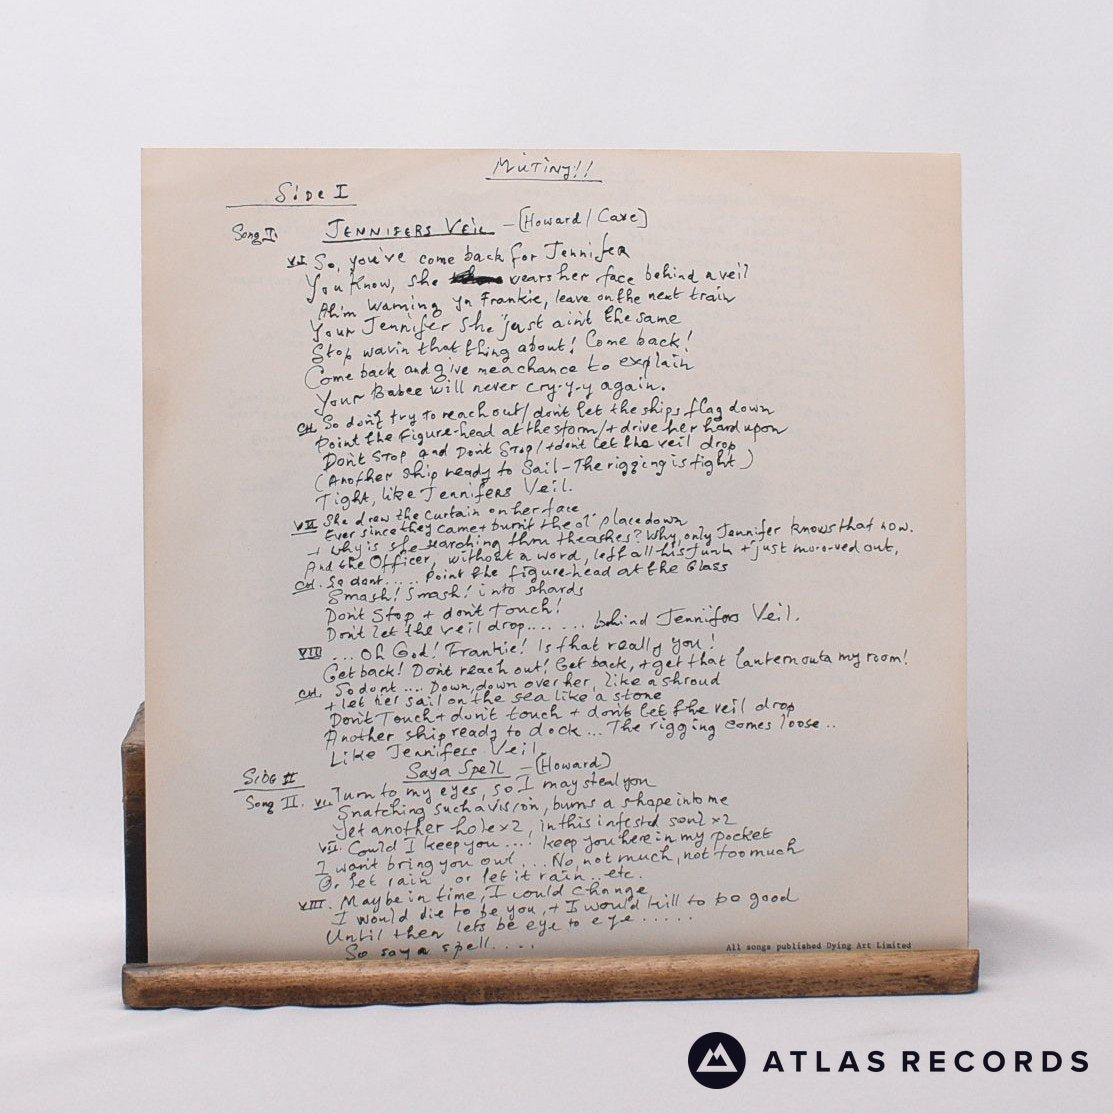 MUTINY!!
SIDE I
Song II. JENNIFERS VEIL - (Howard / Cave)
VI So, you've come back for Jennifer
You Know, she wears her face behind a veil
Ah'm warning yn Frankie, leave on the next train
Your Jennifer she just aint the same
Stop wavin that thing about! Come back!
Come back and give me a chance to explain
Your Babee will never cry-y-y again.
CH. So don't try to reach out / don't let the ships flag down
Point the Figure-head at the storm / + drive her hard upon
Don't STOP and Don't STOP / + dont let the veil drop
(Another ship ready to Sail - The rigging is tight)
Tight, like Jennifers Veil.
VII She drew the curtain on her face
Ever since they came + burnt the ol' place down
+ Why is she searching thru the ashes? Why, only Jennifer knows that now.
And the Officer, without a word, left all his junk + just moo-o-ved out,
CH. So dont..... Point the figure-head at the Glass
Smash! Smash! into shards
Don't Stop + don't Touch!
Don't let the veil drop....... behind Jennifers Veil.
VIII ...Oh God! Frankie! Is that really you!
Get back! Don't reach out! Get back, + get that lantern outa my room!
CH. So dont .... Down, down over her, like a shroud
+ let her sail on the sea like a stone
Don't Touch + don't touch + don't let the veil drop
Another ship ready to dock ... The rigging comes loose..
Like Jennifers Veil.
SIDE II SAY a SPELL - (Howard)
Song II. VI. Turn to my eyes, so I may steal you
Snatching such a vision, burns a shape into me
Yet another hole x2, in this infestd soul x2
VII. Could I keep you....! keep you here in my pocket
I won't bring you out... No, not much, not too much
Or let rain or let it rain..etc.
VIII. Maybe in time, I could change
I would die to be you, + I would kill to be good
Until then lets be eye to eye.....
So say a spell....
All songs published Dying Art Limited
ATLAS RECORDS